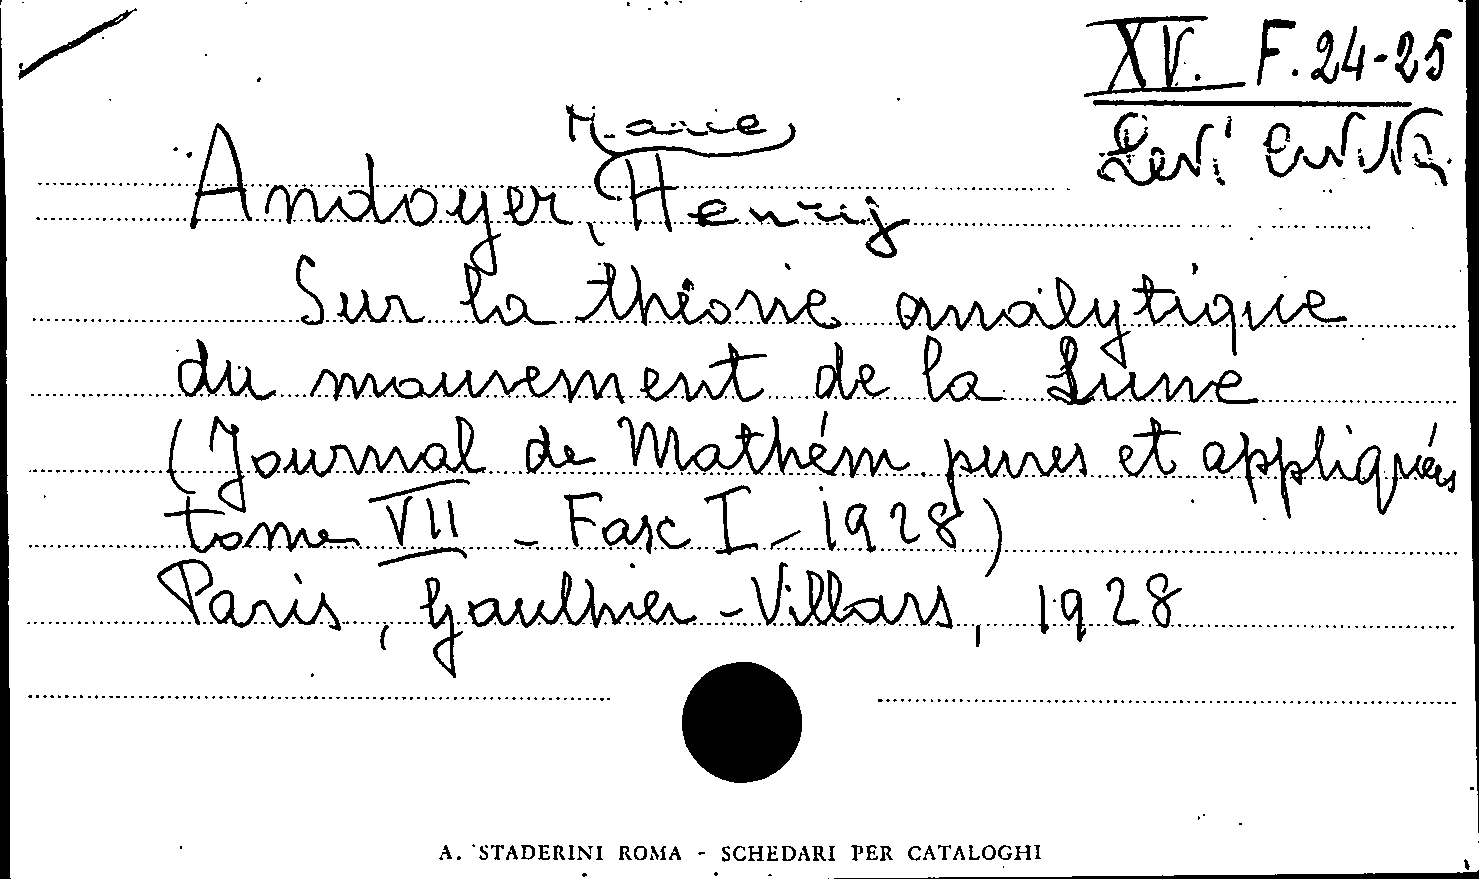 XV. F. 24-25
Levi Civita
Marie
Andoyer, Henry
Sur la théorie analytique
du mouvement de la Lune
(Journal de Mathém. pures et appliquées
tome VII - Fasc I - 1928)
Paris, Gauthier-Villars, 1928
A. STADERINI ROMA - SCHEDARI PER CATALOGHI